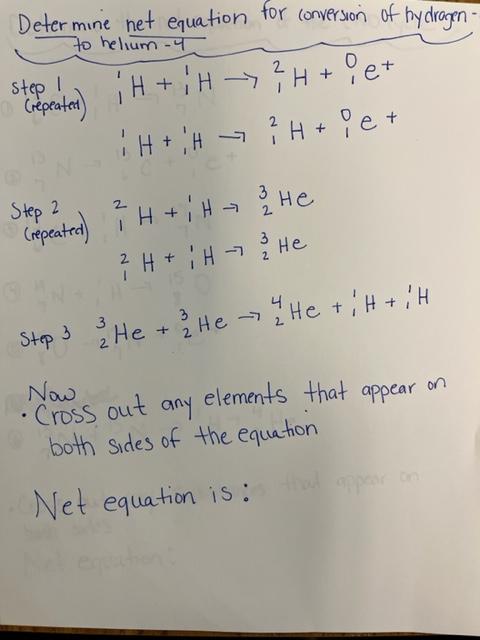 Determine net equation for conversion of hydrogen-
to helium-4
Step 1 ¹₁H + ¹₁H → ²₁H + ⁰₁e+
(repeated)
¹₁H + ¹₁H → ²₁H + ⁰₁e+
Step 2 ²₁H + ¹₁H → ³₂He
(repeated)
²₁H + ¹₁H → ³₂He
Step 3 ³₂He + ³₂He → ⁴₂He + ¹₁H + ¹₁H
Now
• Cross out any elements that appear on
both sides of the equation
Net equation is: